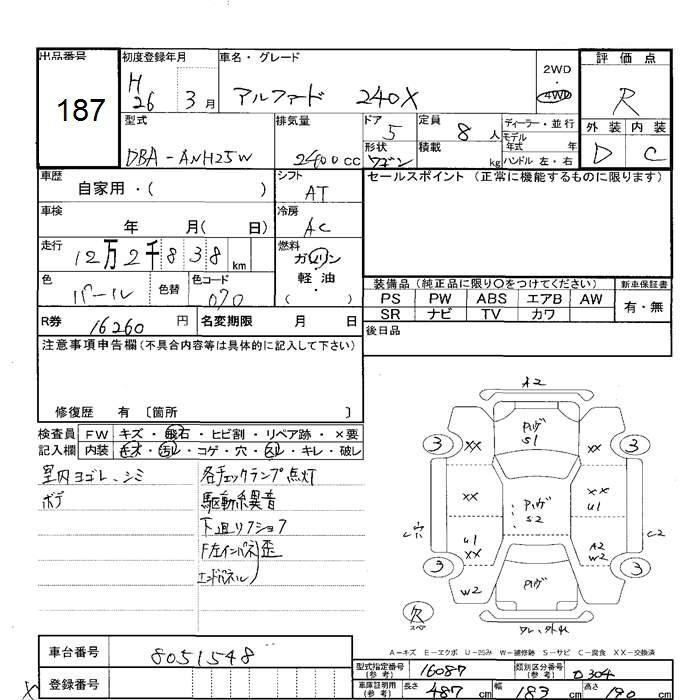 出品番号 初度登録年月 車名・グレード 評価点
187
H 26 3月 アルファード 240X 2WD・4WD R
型式 排気量 ドア 定員 ディーラー・並行 外装 内装
DBA-ANH25W 2400cc 5 8人 モデル年式 年 D C
形状 ワゴン 積載 kg ハンドル 左・右
車歴 自家用・( ) シフト AT セールスポイント (正常に機能するものに限ります)
車検 年 月( 日) 冷房 AC
走行 12万2千838km 燃料 ガソリン 軽油 ・( )
色 パール 色替 色コード 070
装備品 (純正品に限り〇をつけてください) 新車保証書
PS PW ABS エアB AW 有・無
SR ナビ TV カワ
R券 16260円 名変期限 月 日 後日品
注意事項申告欄 (不具合内容等は具体的に記入して下さい)
修復歴 有 〔箇所 〕
検査員 FW キズ・飛石・ヒビ割・リペア跡・×要
記入欄 内装 キズ・汚レ・コゲ・穴・スレ・キレ・破レ
室内ヨゴレ、シミ 各チェックランプ点灯
ボデ 駆動系異音
下廻リ
F左インパネ 歪
エンドパネル
A2
パリング S1
3 XX XX 3
XX パリング S2 XX U1
穴 C2
U1 XX A2 W2
3 3
W2 W2
欠 スペア
A－キズ E－エクボ U－凹み W－補修跡 S－サビ C－腐食 XX－交換済
車台番号 8051548
登録番号
型式指定番号 (参考) 16087 類別区分番号 (参考) 0304
車庫証明用 (参考) 長さ 487cm 幅 183cm 高さ 190cm